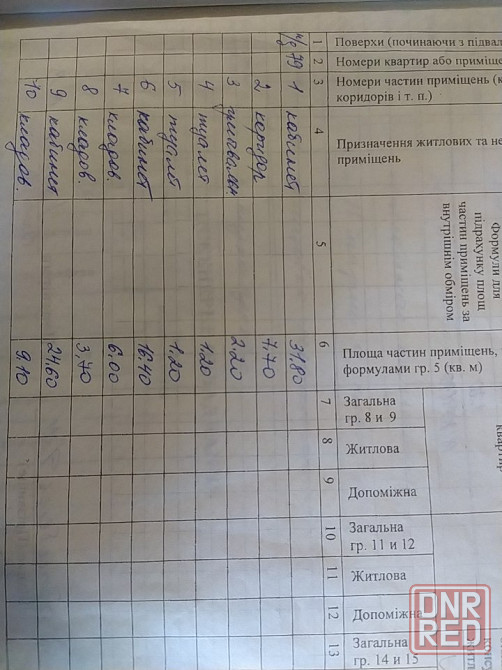 1 Поверхи (починаючи з підвал
2 Номери квартир або приміще
3 Номери частин приміщень (к
коридорів і т. п.)
4 Призначення житлових та не
приміщень
5 Формули для
підрахунку площ
частин приміщень за
внутрішнім обміром
6 Площа частин приміщень,
формулами гр. 5 (кв. м)
7 Загальна
гр. 8 и 9
8 Житлова
9 Допоміжна
10 Загальна
гр. 11 и 12
11 Житлова
12 Допоміжна
13 Загальна
гр. 14 и 15
1 кабинет 31,80
2 коридор 7,70
3 2,20
4 туалет 1,20
5 туалет 1,20
6 кабинет 16,40
7 кладов. 6,00
8 кладов. 3,70
9 кабинет 24,60
10 кладов. 9,10
DNR
RED